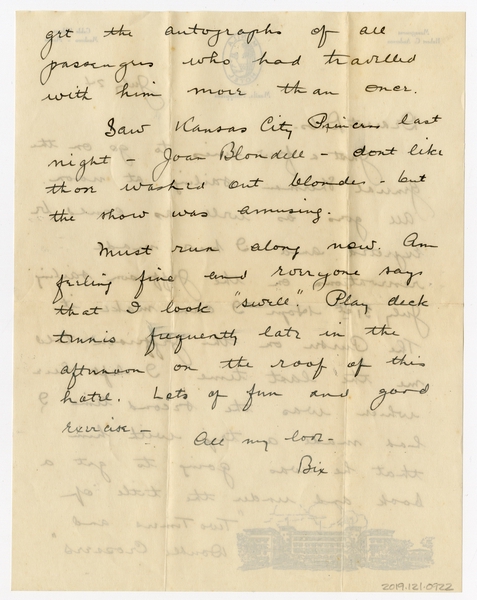 get the autographs of all
passengers who had travelled
with him more than once.
Saw Kansas City Princess last
night - Joan Blondell - dont like
those washed out blondes - but
the show was amusing.
Must run along now. Am
feeling fine and everyone says
that I look "swell". Play deck
tennis frequently late in the
afternoon on the roof of this
hotel. Lots of fun and good
exercise -
All my love -
Bix
2019.121.0922